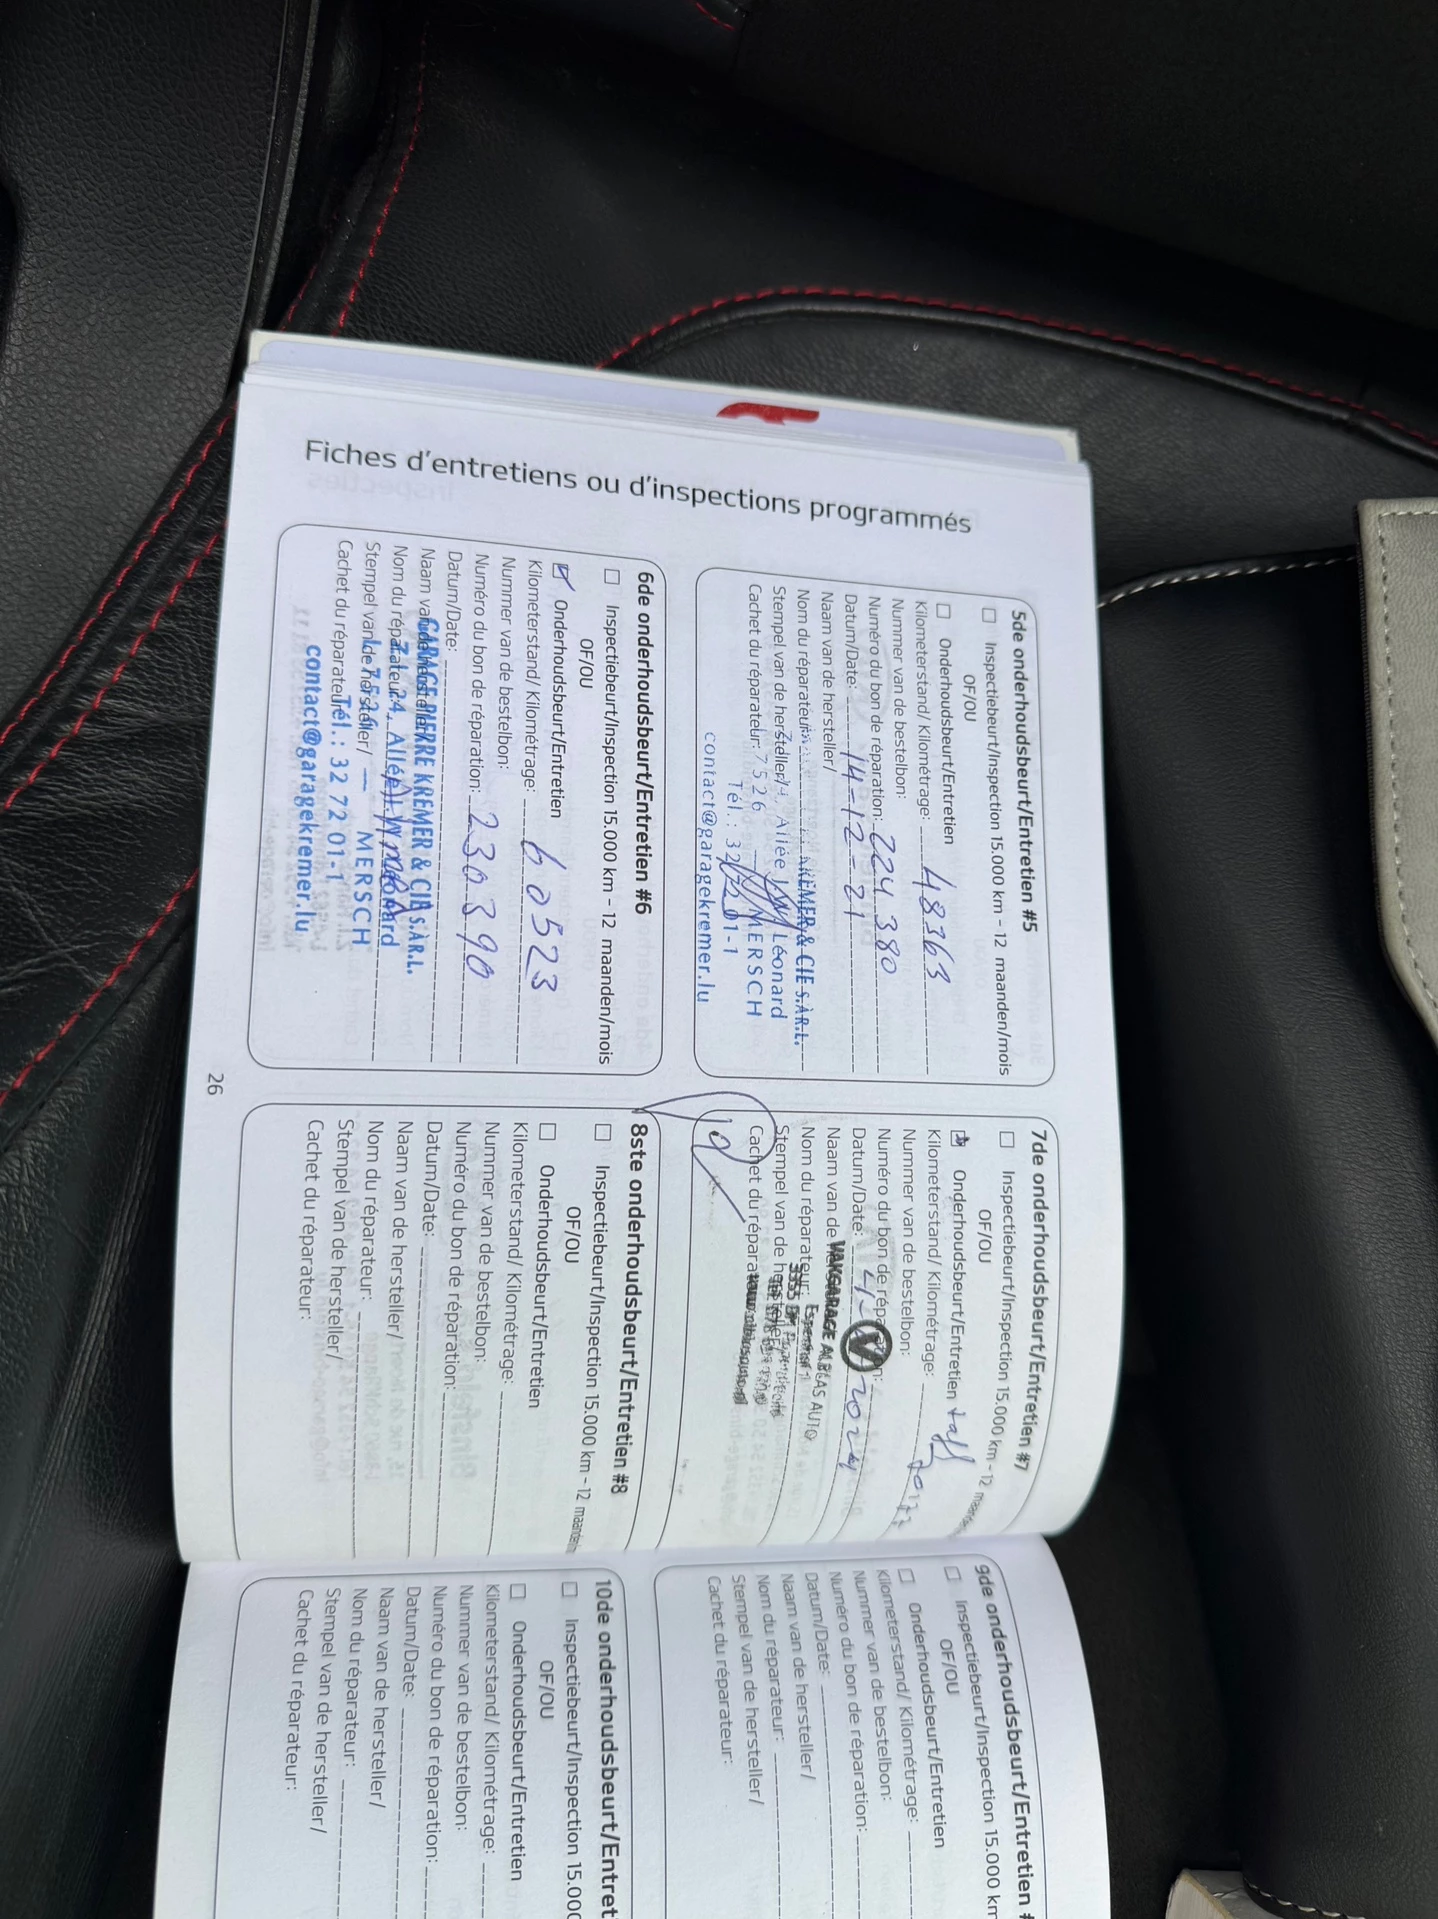 Fiches d'entretiens ou d'inspections programmés
5de onderhoudsbeurt/Entretien #5
Inspectiebeurt/Inspection 15.000 km - 12 maanden/mois
OF/OU
Onderhoudsbeurt/Entretien
Kilometerstand/ Kilométrage: 48363
Nummer van de bestelbon:
Numéro du bon de réparation: 224380
Datum/Date: 14-12-21
Naam van de hersteller/
Nom du réparateur:
KREMER & CIE S.À R.L.
Stempel van de hersteller/
Allée Léonard
Cachet du réparateur:
7526 MERSCH
Tél.: 32 72 01-1
contact@garagekremer.lu
6de onderhoudsbeurt/Entretien #6
Inspectiebeurt/Inspection 15.000 km - 12 maanden/mois
OF/OU
Onderhoudsbeurt/Entretien
Kilometerstand/ Kilométrage: 60523
Nummer van de bestelbon:
Numéro du bon de réparation: 230390
Datum/Date:
Naam van de hersteller/
GARAGE PIERRE KREMER & CIE S.À R.L.
Nom du réparateur:
24, Allée
Stempel van de hersteller/
L-7526 MERSCH
Cachet du réparateur:
Tél.: 32 72 01-1
contact@garagekremer.lu
7de onderhoudsbeurt/Entretien #7
Inspectiebeurt/Inspection 15.000 km - 12
OF/OU
Onderhoudsbeurt/Entretien
Kilometerstand/ Kilométrage:
Nummer van de bestelbon:
Numéro du bon de réparation:
Datum/Date: 2024
Naam van de
VAKGARAGE ALBLAS AUTO
Nom du réparateur:
Stempel van de hersteller/
Cachet du réparateur:
8ste onderhoudsbeurt/Entretien #8
Inspectiebeurt/Inspection 15.000 km - 12
OF/OU
Onderhoudsbeurt/Entretien
Kilometerstand/ Kilométrage:
Nummer van de bestelbon:
Numéro du bon de réparation:
Datum/Date:
Naam van de hersteller/
Nom du réparateur:
Stempel van de hersteller/
Cachet du réparateur:
26
9de onderhoudsbeurt/Entretien #
Inspectiebeurt/Inspection 15.000 km
OF/OU
Onderhoudsbeurt/Entretien
Kilometerstand/ Kilométrage:
Nummer van de bestelbon:
Numéro du bon de réparation:
Datum/Date:
Naam van de hersteller/
Nom du réparateur:
Stempel van de hersteller/
Cachet du réparateur:
10de onderhoudsbeurt/Entret
Inspectiebeurt/Inspection 15.000
OF/OU
Onderhoudsbeurt/Entretien
Kilometerstand/ Kilométrage:
Nummer van de bestelbon:
Numéro du bon de réparation:
Datum/Date:
Naam van de hersteller/
Nom du réparateur:
Stempel van de hersteller/
Cachet du réparateur: